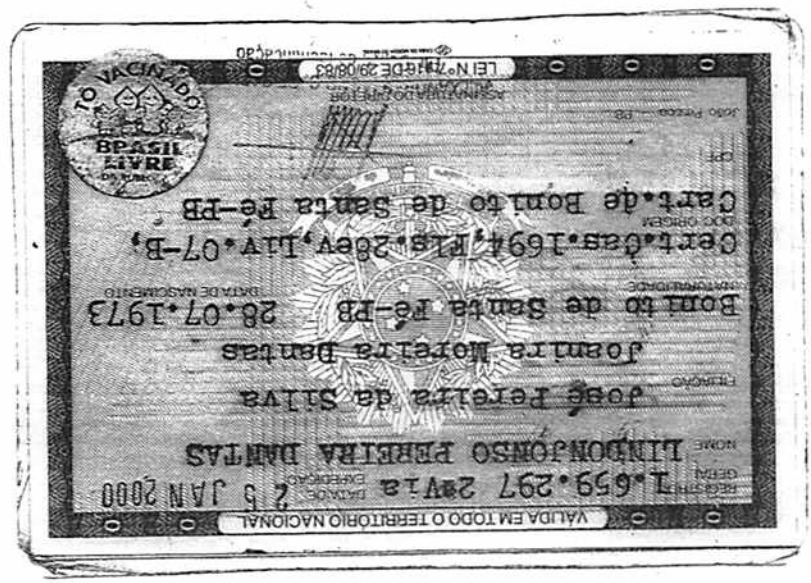 VÁLIDA EM TODO O TERRITÓRIO NACIONAL
REGISTRO GERAL 1.659.297 2ªVia DATA DE EXPEDIÇÃO 25 JAN 2000
NOME LINDONJONSO PEREIRA DANTAS
FILIAÇÃO José Pereira da Silva
Joanira Moreira Dantas
NATURALIDADE DATA DE NASCIMENTO
Bonito de Santa Fé-PB 28.07.1973
DOC ORIGEM Cert.Cas.1694,Fls.28ev,Liv.07-B,
Cart.de Bonito de Santa Fé-PB
CPF
João Pessoa - PB
ASSINATURA DO DIRETOR
LEI Nº 7.116 DE 29/08/83
TÔ VACINADO
BRASIL
LIVRE
DA RUBÉOLA